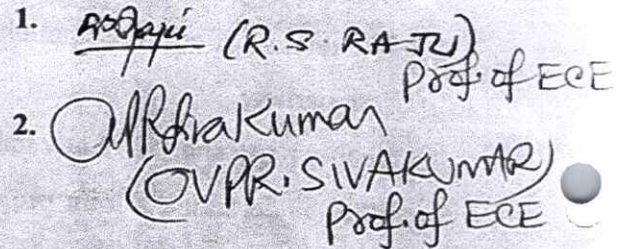 1. (R.S. RAJU)
Prof. of ECE
2.
(OVPR. SIVAKUMAR)
Prof. of ECE